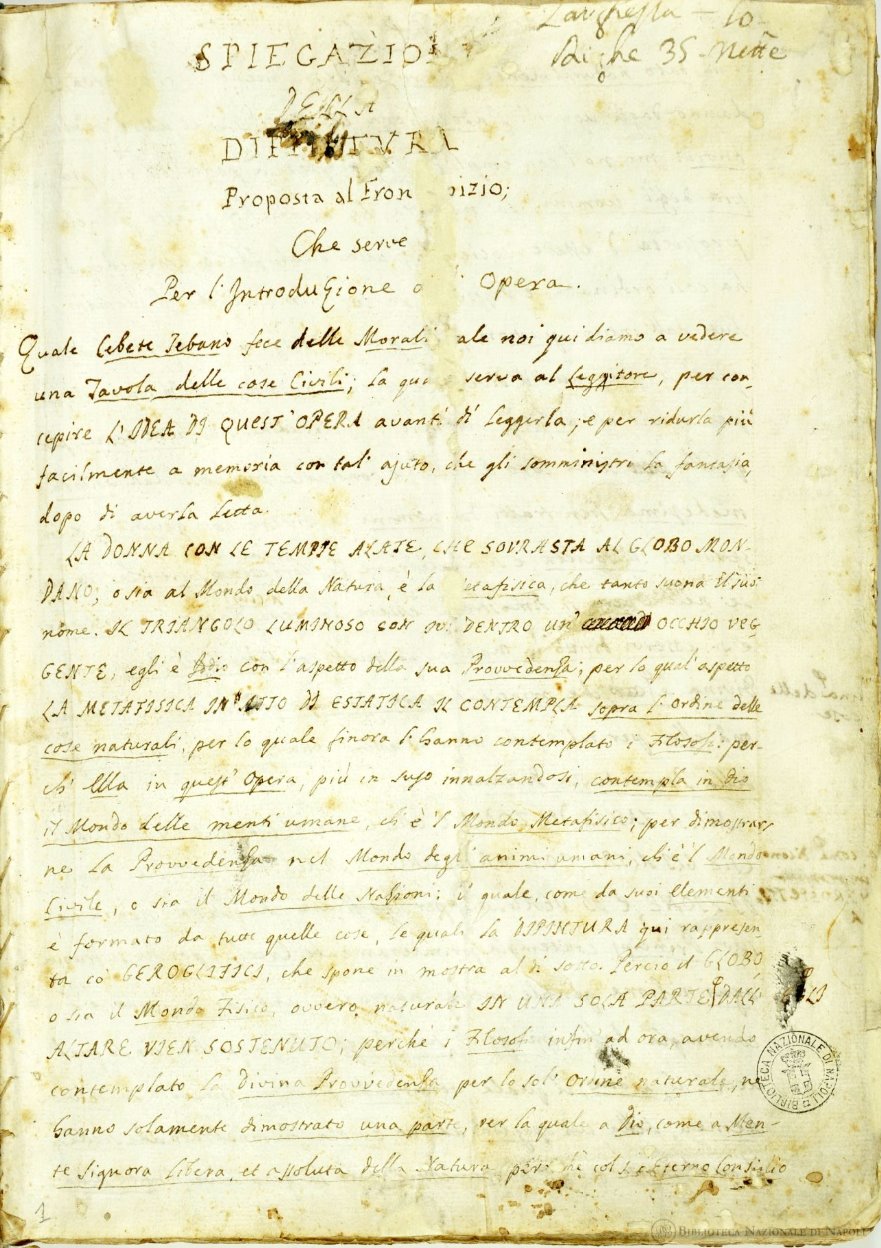 Larghezza
Righe 35 nette
SPIEGAZIO
DELLA
DIPINTURA
Proposta al Fron izio;
Che serve
Per l'Introduzione Opera.
Quale Cebete Tebano fece delle Morali ale noi qui diamo a vedere
una Tavola delle cose Civili; la qua serva al Leggitore, per con-
cepire L'IDEA DI QUEST'OPERA avanti di leggerla; e per ridurla più
facilmente a memoria con tal' ajuto, che gli somministri la fantasia,
dopo di averla letta.
LA DONNA CON LE TEMPIE ALATE, CHE SOVRASTA AL GLOBO MON-
DANO; o sia al Mondo della Natura, è la etafisica, che tanto suona il suo
nome. IL TRIANGOLO LUMINOSO CON IVI DENTRO UN' OCCHIO VEG-
GENTE, egli è Iddio con l'aspetto della sua Provvedenza; per lo qual'aspetto
LA METAFISICA IN ATTO DI ESTATICA IL CONTEMPLA sopra l'ordine delle
cose naturali, per lo quale finora l'hanno contemplato i Filosofi: per-
ch' Ella in quest'Opera, più in suso innalzandosi, contempla in Dio
il Mondo delle menti umane, ch'è 'l Mondo Metafisico; per dimostrar-
ne la Provvedenza nel Mondo degli animi umani, ch'è 'l Mondo
Civile, o sia il Mondo delle Nazioni: il quale, come da suoi elementi
è formato da tutte quelle cose, le quali la DIPINTURA qui rappresen-
ta co' GEROGLIFICI, che spone in mostra al di sotto. Perciò il GLOBO,
o sia il Mondo Fisico, ovvero naturale IN UNA SOLA PARTE DALL'
ALTARE VIEN SOSTENUTO; perchè i Filosofi infin' ad ora, avendo
contemplato la Divina Provvedenza per lo sol' Ordine naturale, ne
hanno solamente dimostrato una parte, per la quale a Dio, come a Men-
te signora libera, et assoluta della Natura però che col s Eterno Consiglio
1
BIBLIOTECA NAZIONALE DI NAPOLI
BIBLIOTECA NAZIONALE DI NAPOLI